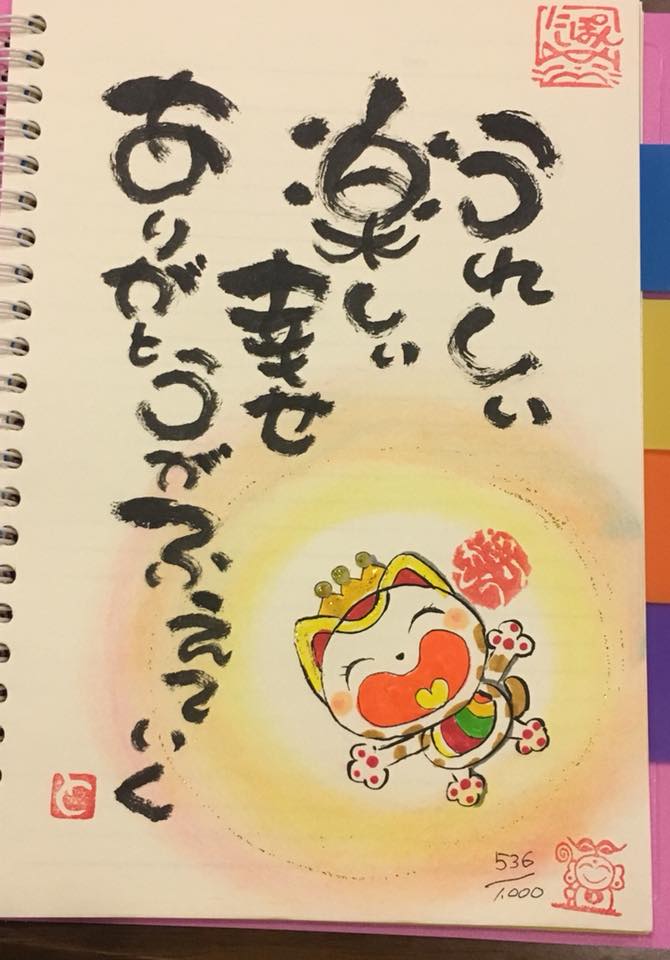 うれしい
楽しい
幸せ
ありがとうでふえていく
にしぽん
と
536
1.000